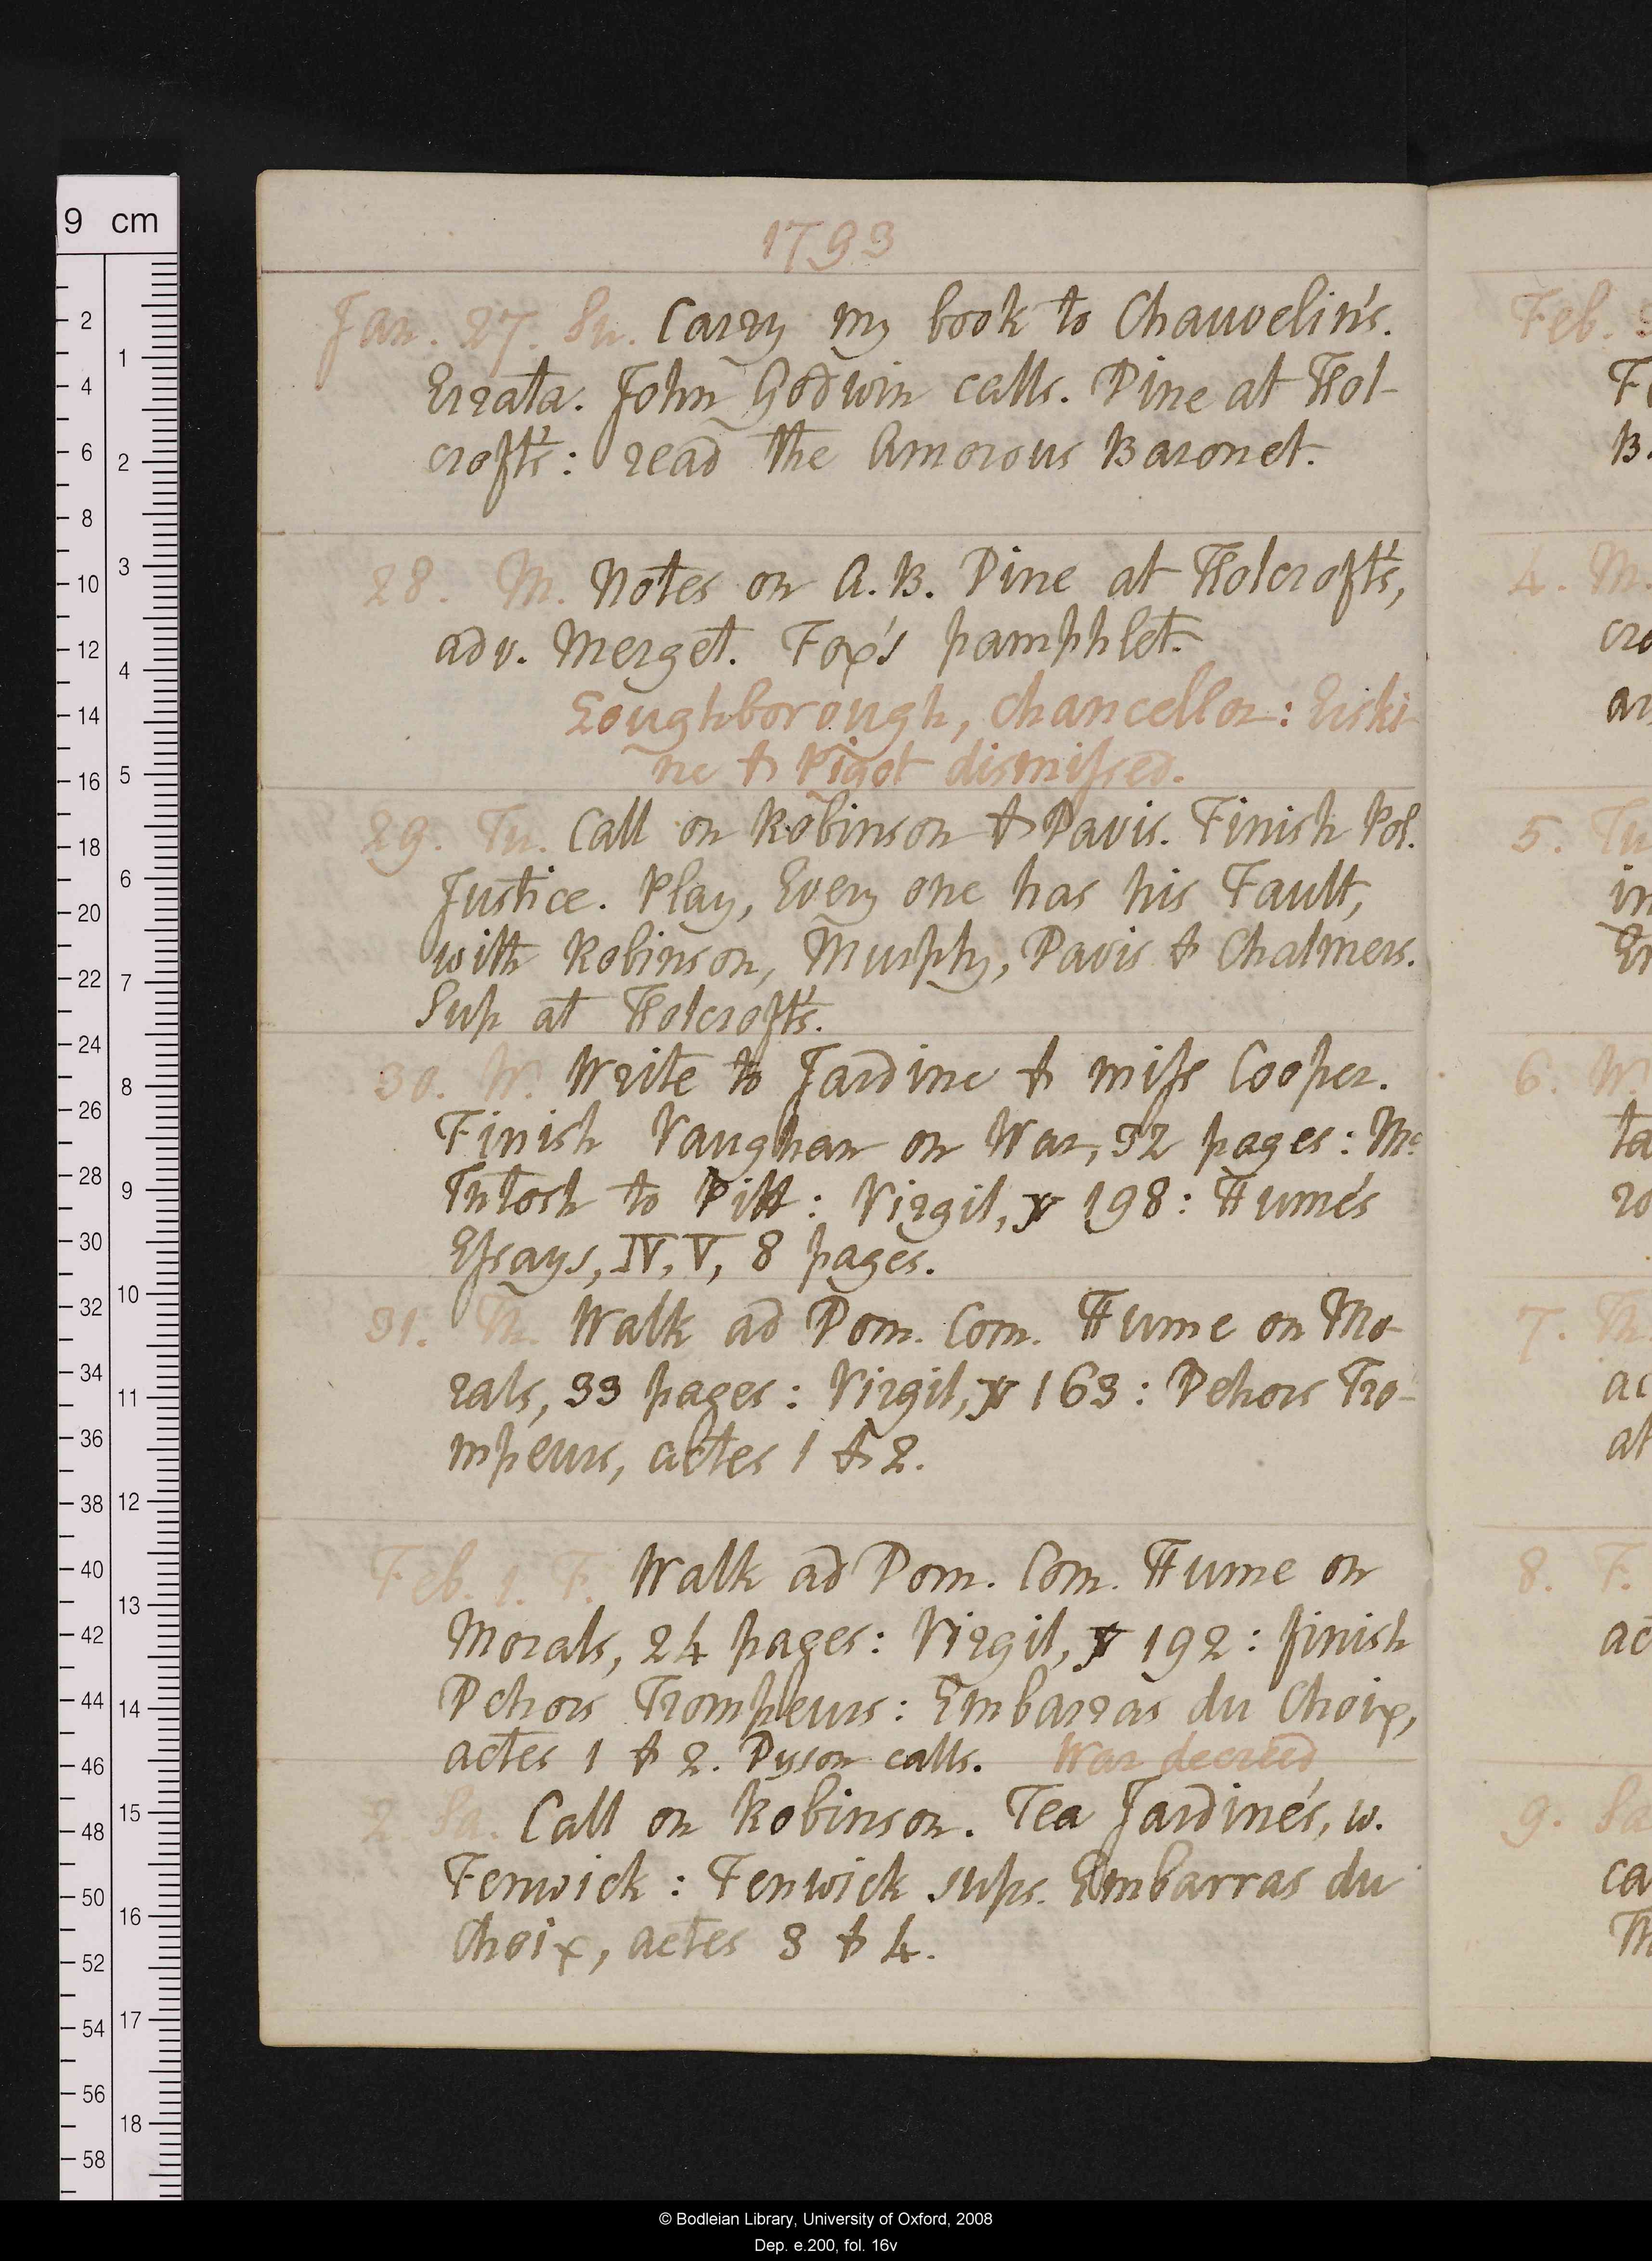 9 cm
1793
Jan. 27. Su. Carry my book to Chauvelin's.
Errata. John Godwin calls. Dine at Hol-
croft's: read the Amorous Baronet.
28. M. Notes on A.B. Dine at Holcroft's,
adv. Merget. Fox's pamphlet.
Loughborough, chancellor: Erski-
ne & Pigot dismissed.
29. Tu. Call on Robinson & Davis. Finish Pol.
Justice. Play, Every one has his Fault,
with Robinson, Murphy, Davis & Chalmers.
Sup at Holcroft's.
30. W. Write to Jardine & miss Cooper.
Finish Vaughan on War, 32 pages: Mc
Intosh to Pitt: Virgil, 198: Hume's
Essays, IV, V, 8 pages.
31. Th. Walk ad Dom. Com. Hume on Mo-
rals, 33 pages: Virgil, 163: Dehors Tro-
mpeurs, actes 1 & 2.
Feb. 1. F. Walk ad Dom. Com. Hume on
Morals, 24 pages: Virgil, 192: finish
Dehors Trompeurs: Embarras du Choix,
actes 1 & 2. Dyson calls. War decreed
2 Sa. Call on Robinson. Tea Jardine's, w.
Fenwick: Fenwick sups. Embarras du
Choix, actes 3 & 4.
Feb.
4. M.
cro
5. Tu
in
6. W.
7. Th.
at
8. F.
9. Sa
ca
Th
© Bodleian Library, University of Oxford, 2008
Dep. e.200, fol. 16v